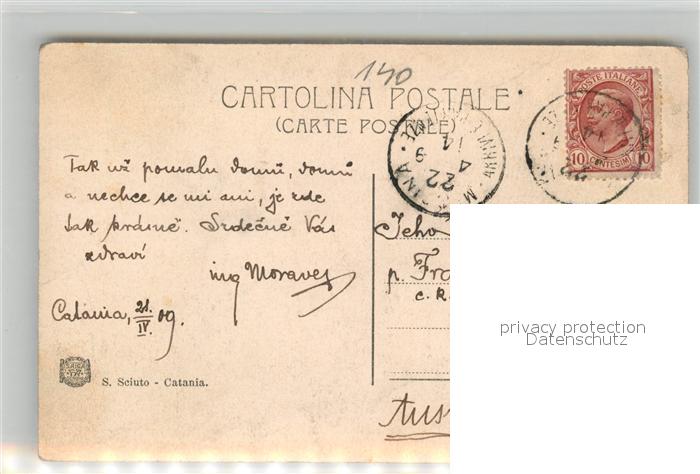 140
CARTOLINA POSTALE
(CARTE POSTALE)
POSTE ITALIANE
10 CENTESIMI 10
22
4
9
14
Tak už pomalu domů, domů
a nechce se mi ani, je zde
tak krásně. Srdečně Vás
zdraví
ing Moravec
Catania, 21./IV. 09.
S. Sciuto - Catania.
Jeho
p. Fra
c. k.
Aus
privacy protection
Datenschutz